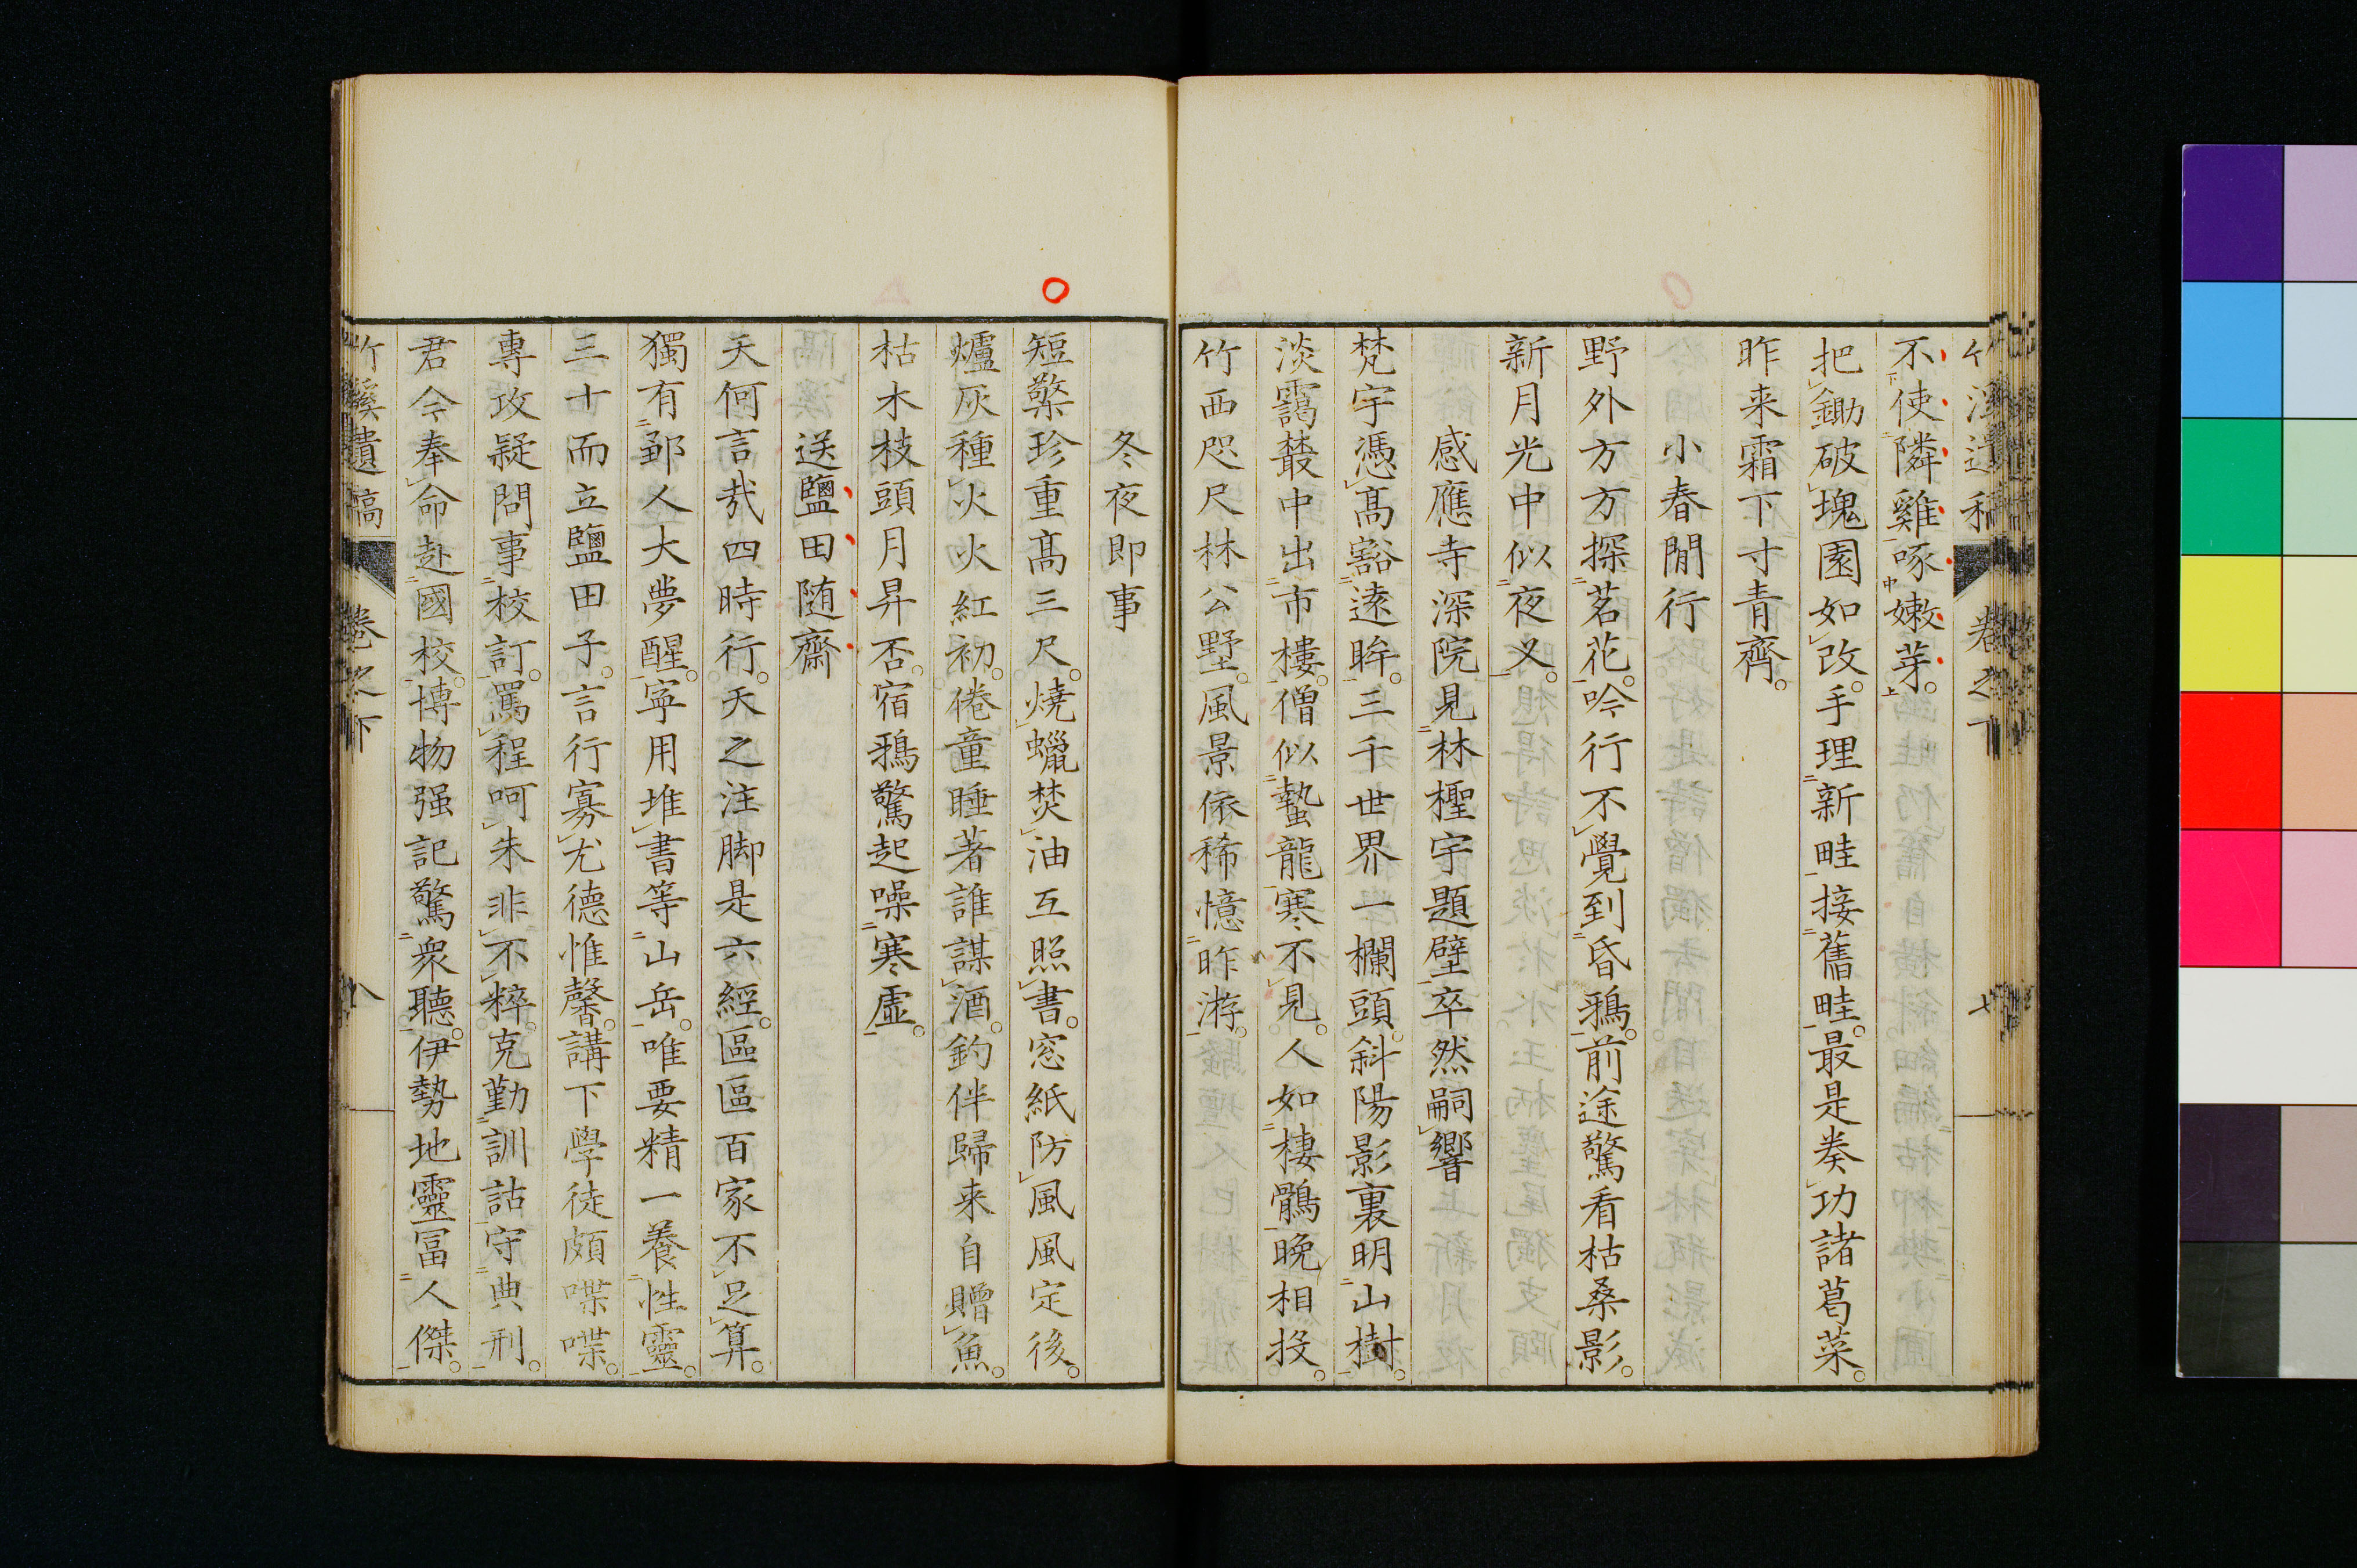 不使隣雞啄嫩芽
把鋤破塊園如改手理新畦接舊畦最是奏功諸葛菜
昨来霜下寸青齊
小春閒行
野外方方探茗花吟行不覺到昏鴉前途驚看枯桑影
新月光中似夜叉
感應寺深院見林檉宇題壁卒然嗣響
梵宇憑髙豁遠眸三千世界一欄頭斜陽影裏明山樹
淡靄叢中出市樓僧似蟄龍寒不見人如棲鶻晩相投
竹西咫尺林公墅風景依稀憶昨游
冬夜即事
短檠珍重髙三尺燒蠟焚油互照書窓紙防風風定後
爐灰種火火紅初倦童睡著誰謀酒釣伴歸来自贈魚
枯木枝頭月昇否宿鴉驚起噪寒虛
送鹽田随齋
天何言哉四時行天之注脚是六經區區百家不足算
獨有郢人大夢醒寧用堆書等山岳唯要精一養性靈
三十而立鹽田子言行寡尤德惟馨講下學徒頗喋喋
專攻疑問事校訂罵程呵朱非不粹克勤訓詁守典刑
君今奉命赴國校博物强記驚衆聽伊勢地靈冨人傑
竹溪遺稿 卷之下 八